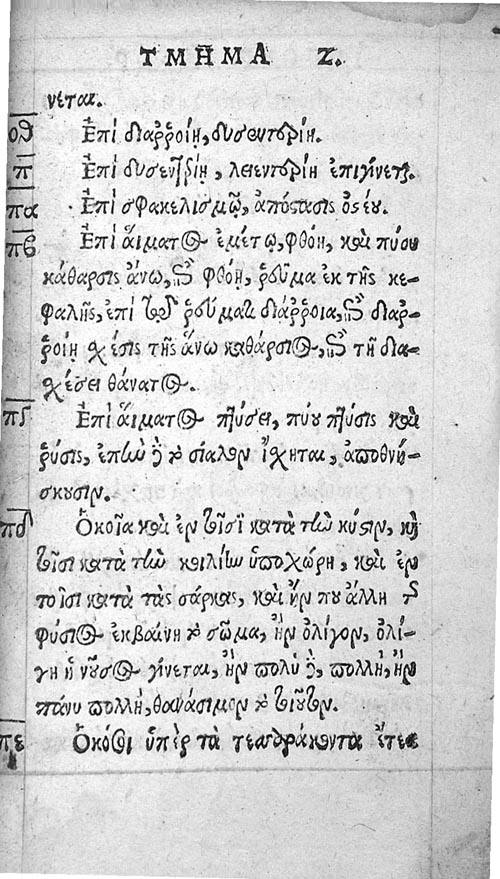 ΤΜΗΜΑ Ζ.
νεται.
οθ Ἐπὶ διαῤῥοίῃ, δυσεντερίη.
π Ἐπὶ δυσεντερίῃ, λειεντερίη ἐπιγίνεται.
πα Ἐπὶ σφακελισμῷ, ἀπόστασις ὀστέου.
πβ Ἐπὶ αἵματος ἐμέτῳ, φθόη, καὶ πύου
κάθαρσις ἄνω, ἐπὶ φθόῃ, ῥεῦμα ἐκ τῆς κε-
φαλῆς, ἐπὶ τῷ ῥεύματι διάῤῥοια, ἐπὶ διαῤ-
ῥοίῃ σχέσις τῆς ἄνω καθάρσιος, ἐπὶ τῇ δια-
σχέσει θάνατος.
Ἐπὶ αἵματος πτύσει, πύου πτύσις καὶ
ῥύσις, ἐπὴν δὲ τὸ σίαλον ἴχηται, ἀποθνή-
σκουσιν.
πδ Ὁκοῖα καὶ ἐν τοῖσι κατὰ τὴν κύστιν, καὶ
τοῖσι κατὰ τὴν κοιλίην ὑποχώρη, καὶ ἐν
τοῖσι κατὰ τὰς σάρκας, καὶ ἤν που ἄλλη τῆς
φύσιος ἐκβαίνη τὸ σῶμα, ἢν ὀλίγον, ὀλί-
γη ἡ νοῦσος γίνεται, ἢν πολὺ δὲ, πολλὴ, ἢν
πάνυ πολλὴ, θανάσιμον τὸ τοιοῦτον.
πε Ὁκόσοι ὑπὲρ τὰ τεσσαράκοντα ἔτεα